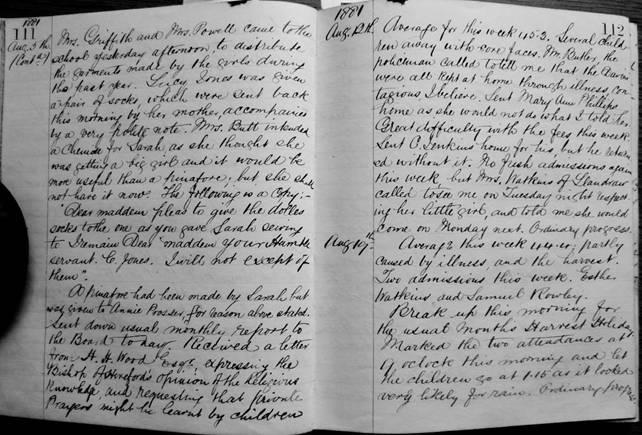 1881
111
Aug. 5th
Cont.d
Mrs. Griffith and Mrs. Powell came to the
school yesterday afternoon, to distribute
the garments made by the girls during
the past year. Lucy Jones was given
a pair of socks, which were sent back
this morning by her mother, accompanied
by a very polite note. Mrs. Butt intended
a Chemise for Sarah, as she thought she
was getting a big girl and it would be
more useful than a pinafore, but she shall
not have it now. The following is a copy:-
"Dear maddem pleas to give the dolles
socks to the one as you gave Sarah sewing
to I remain Dear maddem your Humble
servant. C. Jones. I will not except of
them".
A pinafore had been made by Sarah but
was given to Annie Prosser, for reason above stated.
Sent down usual monthly report to
the Board to day. Received a letter
from H. H. Wood Esqr., expressing the
Bishop of Hereford's opinion of the Religious
Knowledge and requesting that private
Prayers might be learnt by children
1881
112
Aug. 12th
Average for this week 45.3. Several child
ren away with sore faces. Mr. Butler, the
policeman called to tell me that the
were all kept at home through illness con
tagious I believe. Sent Mary Ann Phillips
home as she would not do what I told her.
Great difficulty with the fees this week
Sent C. Jenkins home for his, but he return
ed without it. No fresh admissions again
this week, but Mrs. Watkins of
called to see me on Tuesday night respect
ing her little girl, and told me she would
come on Monday next. Ordinary progress.
Aug 19th
Average this week 44.0, partly
caused by illness, and the harvest.
Two admissions this week. Esther
Watkins and Samuel Rowley.
Break up this morning for
the usual months Harvest Holiday
Marked the two attendances at
o'clock this morning and let
the children go at 1.15 as it looked
very likely for rain. Ordinary progress